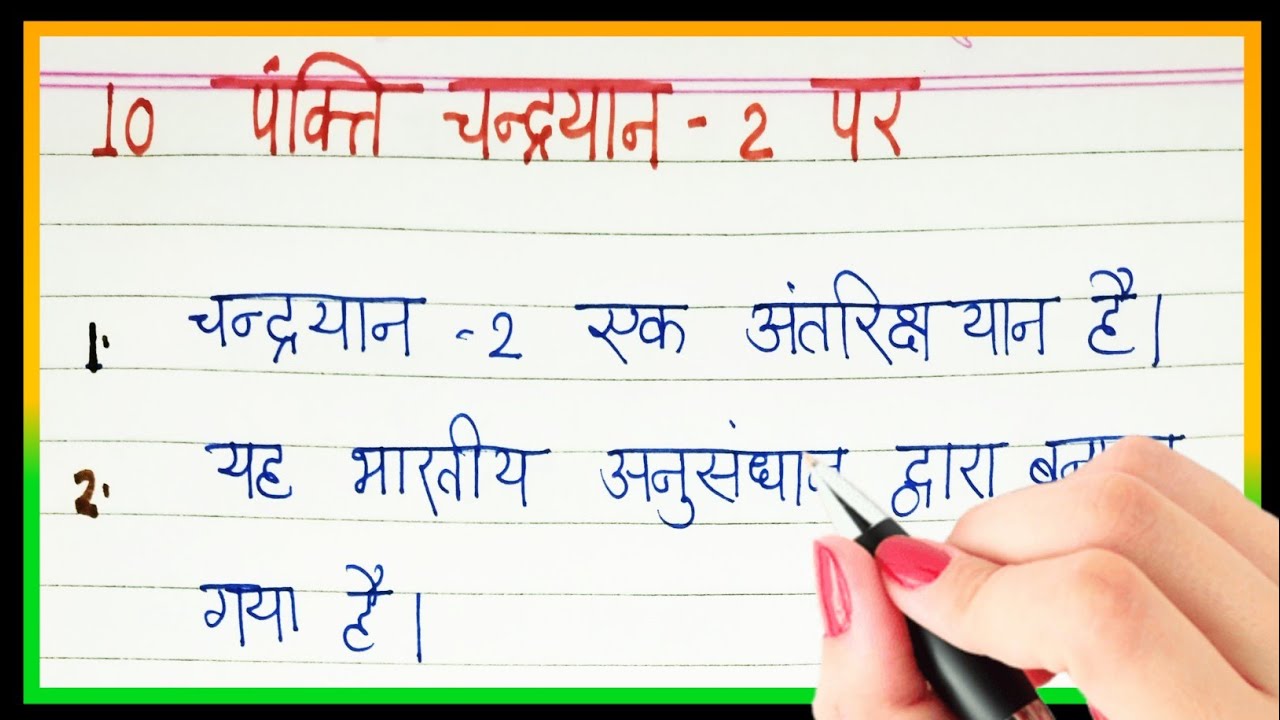 10 पंक्ति चन्द्रयान - 2 पर
1. चन्द्रयान - 2 एक अंतरिक्ष यान है।
2. यह भारतीय अनुसंधान द्वारा
गया है।